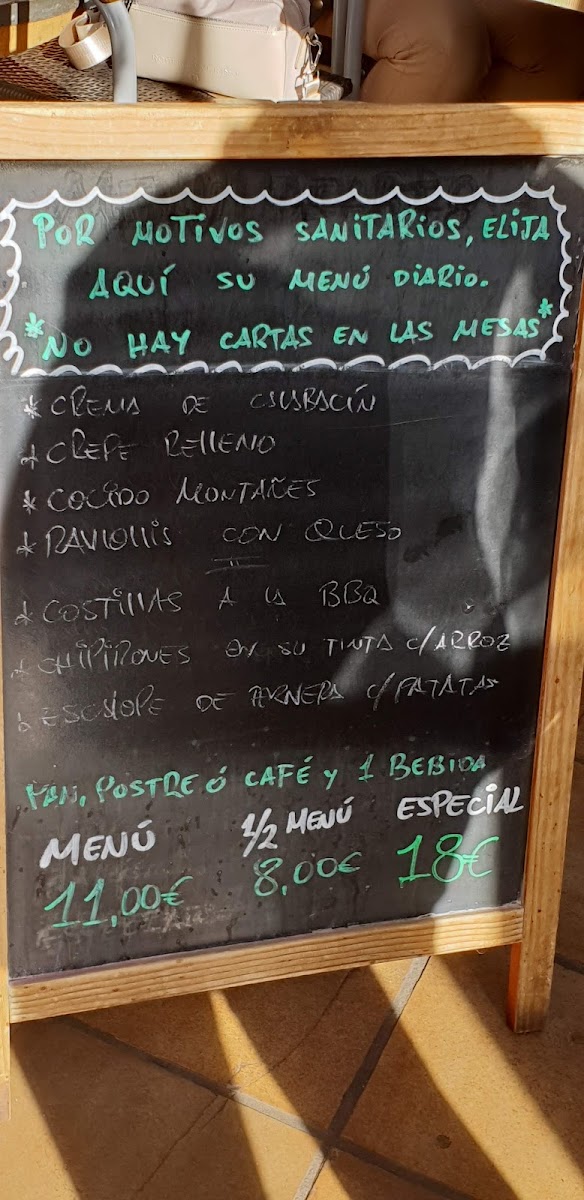 POR MOTIVOS SANITARIOS, ELIJA
AQUÍ SU MENÚ DIARIO.
*NO HAY CARTAS EN LAS MESAS*
* CREMA DE CALABACÍN
* CREPE RELLENO
* COCIDO MONTAÑES
* RAVIOLLIS CON QUESO
* COSTILLAS A LA BBQ
* CHIPIRONES EN SU TINTA C/ARROZ
* ESCALOPE DE TERNERA C/PATATAS
PAN, POSTRE Ó CAFÉ Y 1 BEBIDA
MENÚ 1/2 MENÚ ESPECIAL
11,00€ 8,00€ 18€